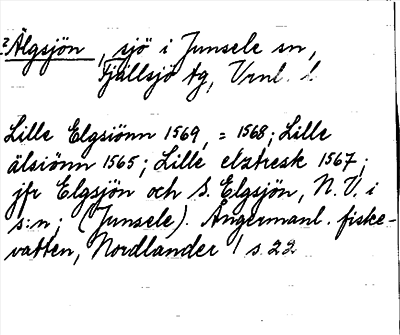 ? Älgsjön, sjö i Junsele sn,
Fjällsjö tg, Vrnl. l.
Lille Elgsiönn 1569, = 1568; Lille
älsiönn 1565; Lille elztresk 1567;
jfr Elgsjön och S. Elgsjön, N.V. i
s:n; (Junsele). Ångermanl. fiske-
vatten, Nordlander / s. 22